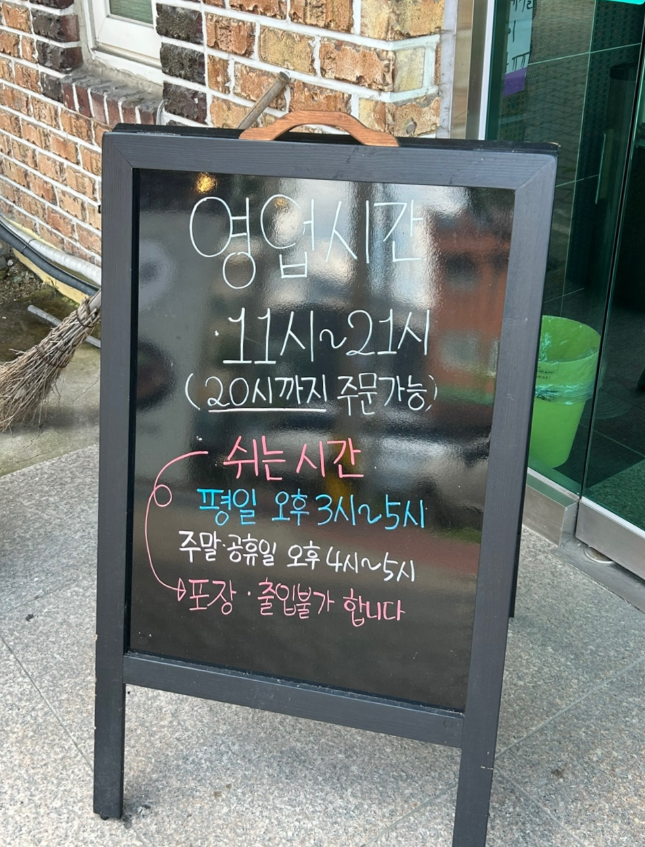 영업시간
·11시~21시
(20시까지 주문가능)
쉬는 시간
평일 오후 3시~5시
주말·공휴일 오후 4시~5시
포장·출입불가 합니다